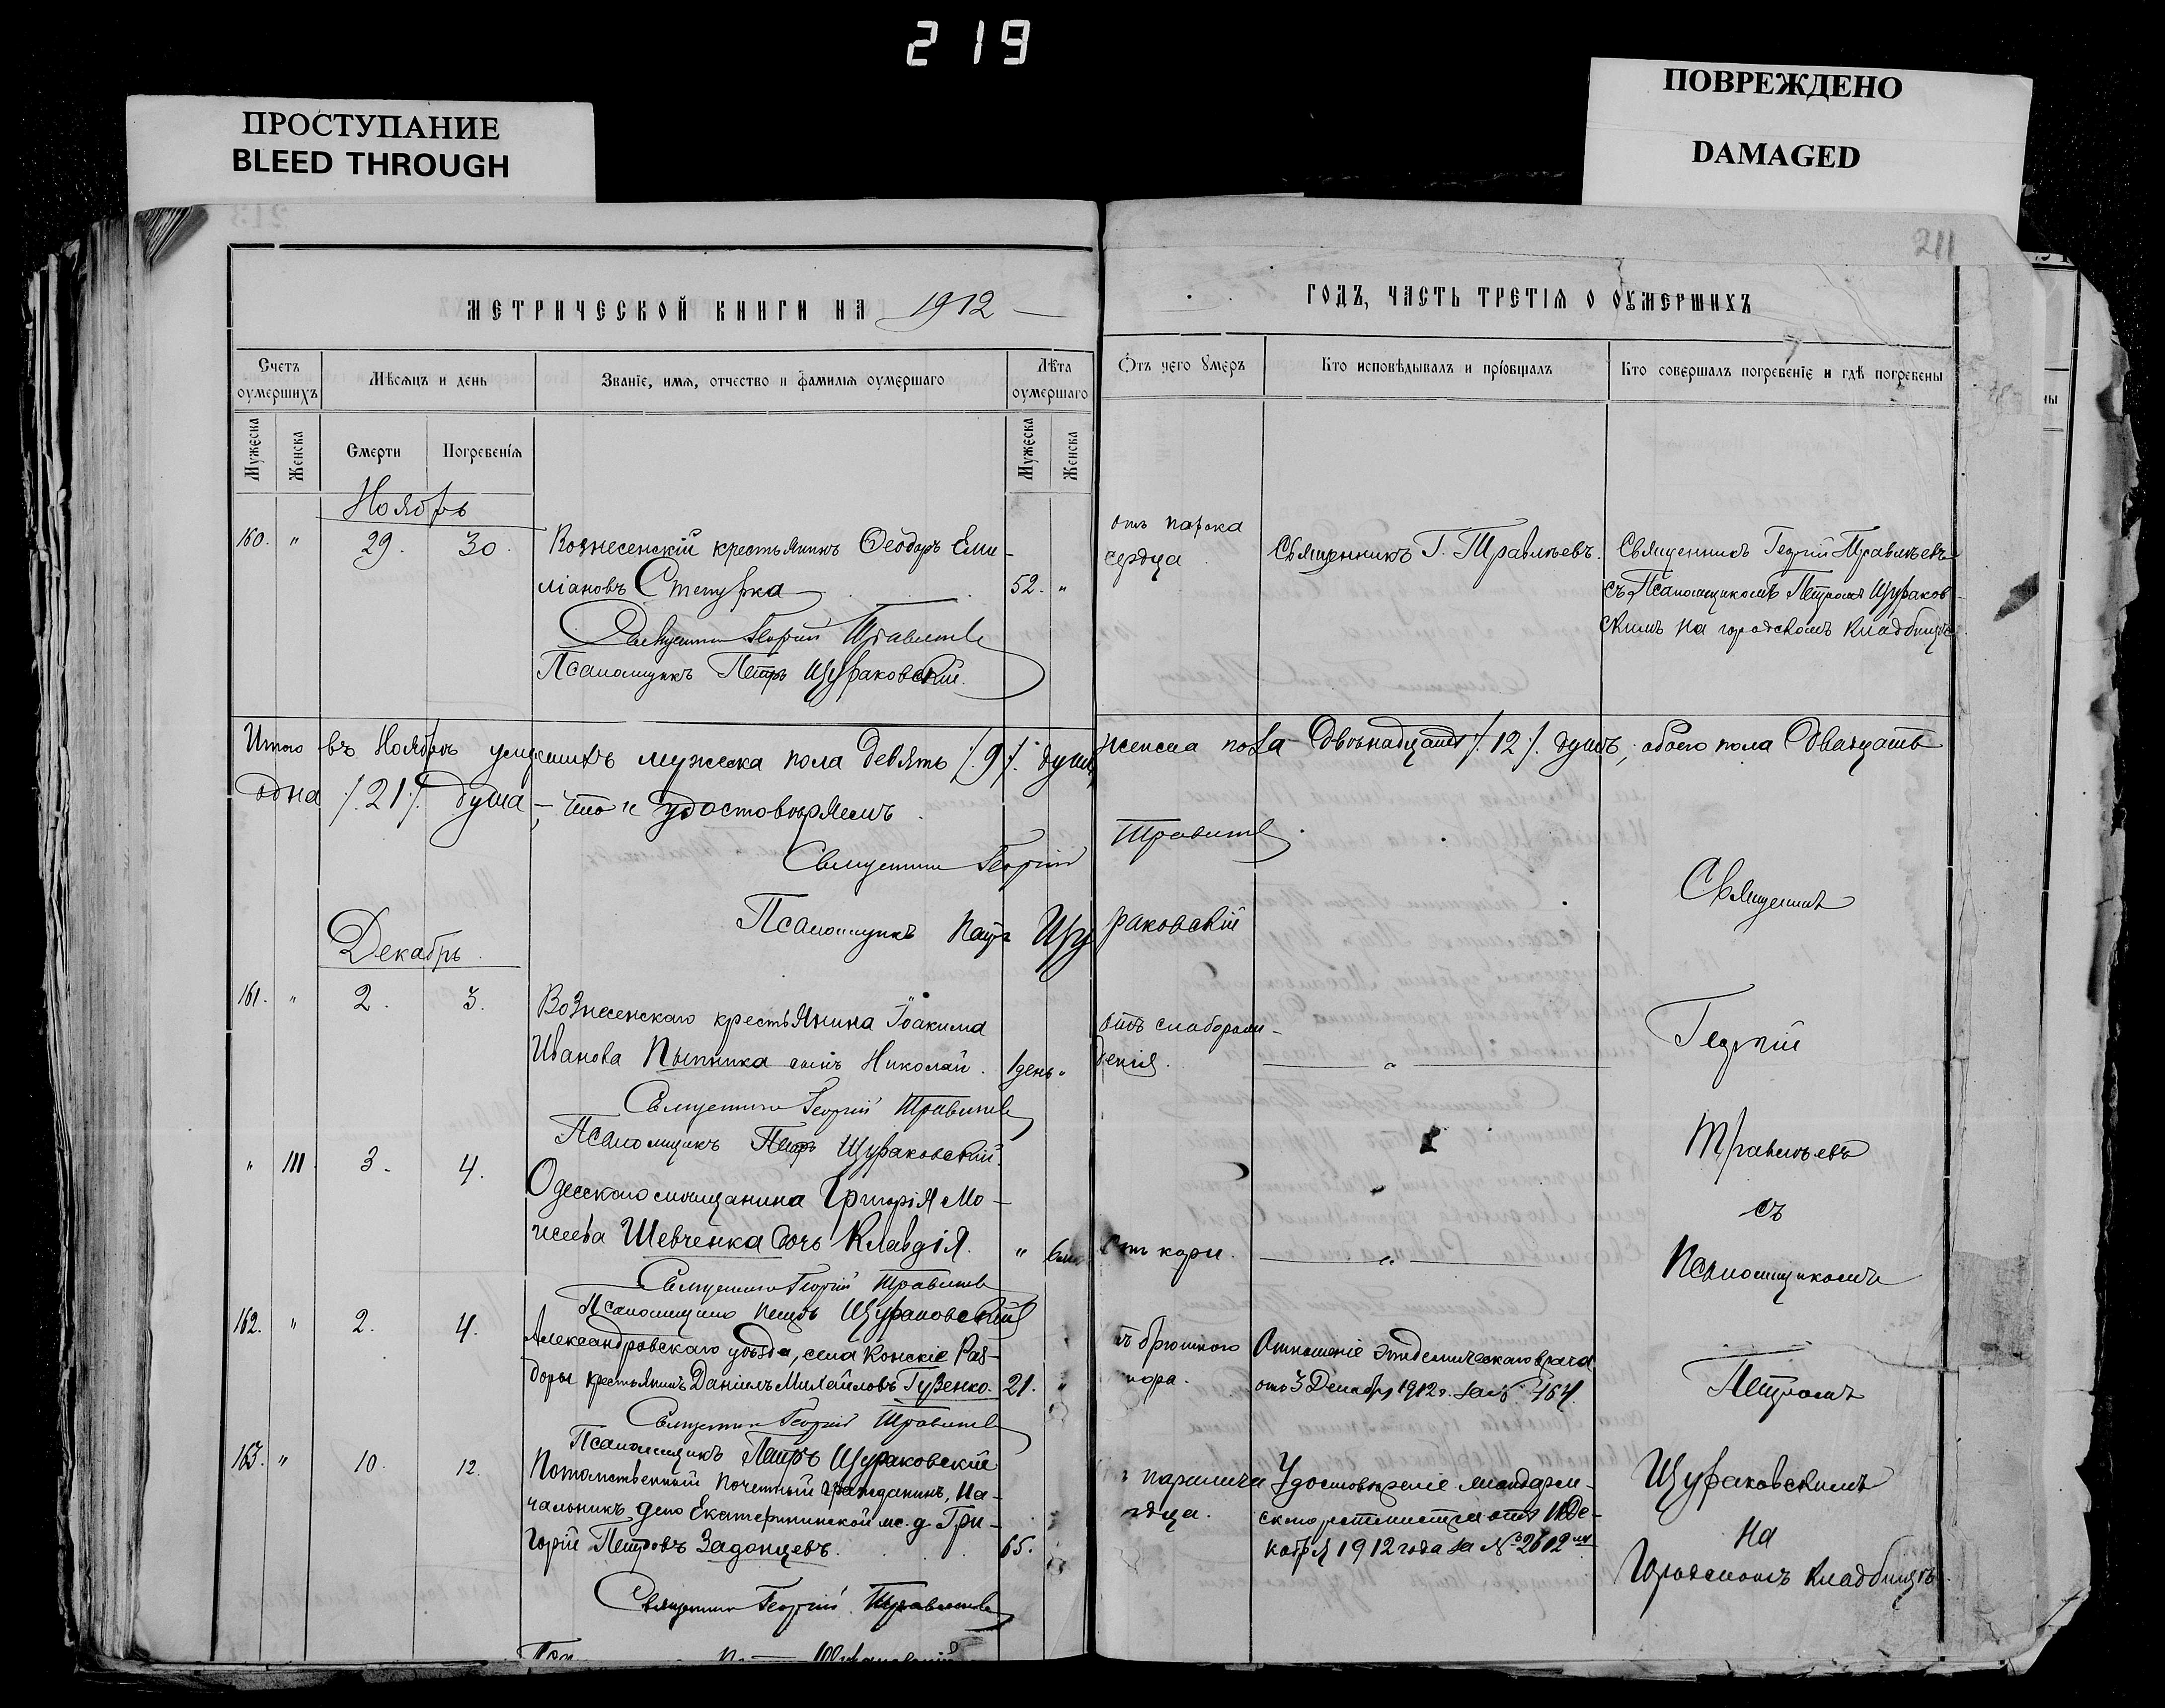 219
ПРОСТУПАНИЕ
BLEED THROUGH
ПОВРЕЖДЕНО
DAMAGED
211
МЕТРИЧЕСКОЙ КНИГИ НА 1912
ГОДЪ, ЧАСТЬ ТРЕТІЯ О ОУМЕРШИХЪ
Счетъ оумершихъ
Мѣсяцъ и день
Званіе, имя, отчество и фамилія оумершаго
Лѣта оумершаго
Отъ чего умеръ
Кто исповѣдывалъ и пріобщалъ
Кто совершалъ погребеніе и гдѣ погребены
Мужеска
Женска
Смерти
Погребенія
Мужеска
Женска
Ноябрь
160. " 29. 30. Вознесенскій крестьянинъ Ѳеодоръ Еми-
ліановъ Степурка 52. "
отъ порока
сердца
Священникъ Г. Травлѣевъ.
Священникъ Георгій Травлѣевъ
съ Псаломщикомъ Петромъ Щураков-
скимъ на городскомъ кладбищѣ
Священникъ Георгій
Псаломщикъ Петръ Щураковскій.
Итого въ Ноябрѣ умершихъ мужеска пола девять /.9/. душъ, женска пола двѣнадцать /.12./. душъ, обоего пола двадцать
одна /.21./. душа, – что и удостовѣряемъ.
Священникъ Георгій
Псаломщикъ Петръ Щураковскій
Декабрь.
161. " 2. 3. Вознесенскаго крестьянина Іоакима
Иванова Пыпника сынъ Николай. 1 день "
отъ слаборож-
денія.
"
Священникъ Георгій
Псаломщикъ Петръ Щураковскій.
" 111 3. 4. Одесскаго мѣщанина Григорія Мо-
исеева Шевченка дочь Клавдія. "
кори.
"
Священникъ Георгій
Псаломщикъ Петръ Щураковскій
162. " 2. 4. Александровскаго уѣзда, села Конскіе Раз-
доры крестьянинъ Даніилъ Михайловъ Гузенко. 21. "
брюшного
Отношеніе эпидемическаго врача
отъ 3 Декабря 1912 г. за №
Священникъ Георгій
Псаломщикъ Петръ Щураковскій
163. " 10. 12. Потомственный Почетный Гражданинъ, На-
чальникъ депо Екатерининской ж. д. Гри-
горій Петровъ Задонцевъ. 65.
паралича
Удостовѣреніе жандарм-
1912 года за № 2602
Священникъ Георгій
Священникъ
Георгій
Травлѣевъ
съ
Псаломщикомъ
Петромъ
Щураковскимъ
на
Городскомъ кладбищѣ.